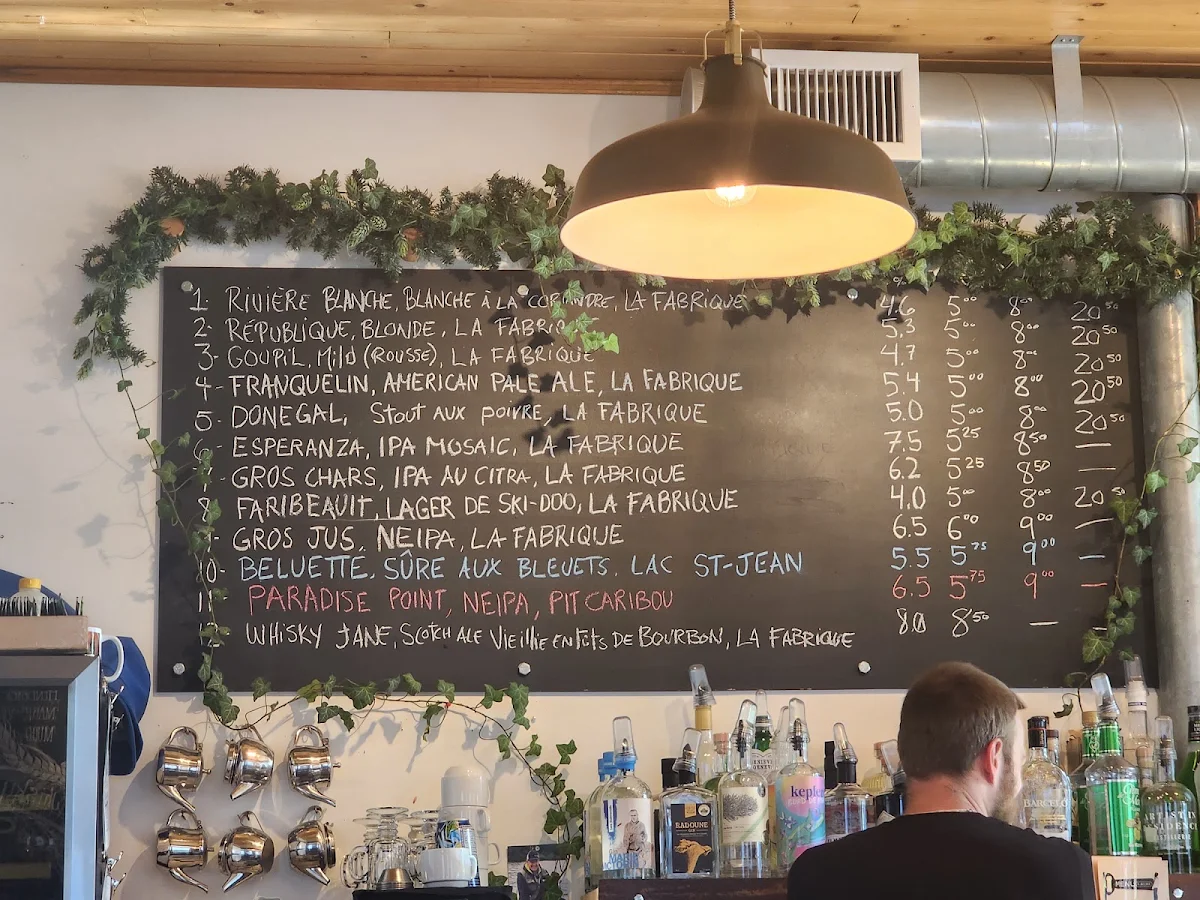 %
1- RIVIÈRE BLANCHE, BLANCHE À LA CORIANDRE, LA FABRIQUE 4.6 5⁰⁰ 8⁰⁰ 20⁵⁰
2- RÉPUBLIQUE, BLONDE, LA FABRIQUE 5.3 5⁰⁰ 8⁰⁰ 20⁵⁰
3- GOUPIL, Mild (ROUSSE), LA FABRIQUE 4.7 5⁰⁰ 8⁰⁰ 20⁵⁰
4- FRANQUELIN, AMERICAN PALE ALE, LA FABRIQUE 5.4 5⁰⁰ 8⁰⁰ 20⁵⁰
5- DONEGAL, Stout AUX POIVRE, LA FABRIQUE 5.0 5⁰⁰ 8⁰⁰ 20⁵⁰
6- ESPERANZA, IPA MOSAIC, LA FABRIQUE 7.5 5²⁵ 8⁵⁰ —
GROS CHARS, IPA AU CITRA, LA FABRIQUE 6.2 5²⁵ 8⁵⁰ —
8- FARIBEAUIT, LAGER DE SKI-DOO, LA FABRIQUE 4.0 5⁰⁰ 8⁰⁰ 20⁵⁰
GROS JUS, NEIPA, LA FABRIQUE 6.5 6⁰⁰ 9⁰⁰ —
10- BELUETTE, SÛRE AUX BLEUETS, LAC ST-JEAN 5.5 5⁷⁵ 9⁰⁰ —
PARADISE POINT, NEIPA, PIT CARIBOU 6.5 5⁷⁵ 9⁰⁰ —
WHISKY JANE, SCOTCH ALE Vieillie en fûts DE BOURBON, LA FABRIQUE 8.0 8⁵⁰ — —
kepler
RADOUNE
BARCELO
MENU